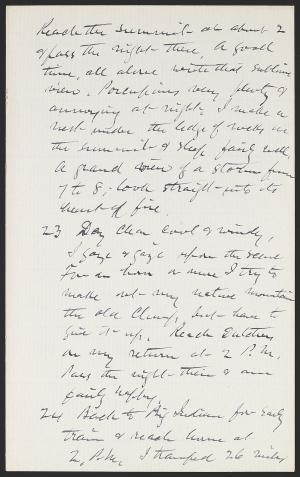 Reach the summit at about 2
& pass the night there, A good
time, all alone with that sublime
view. Porcupines very plenty &
annoying at night; I make a
nest under the ledge of rocks on
the summit & sleep fairly well.
A grand view of a storm from
7 to 8; look straight into its
heart of fire.
23 Day clear cool & windy,
I gaze & gaze upon the scene
For an hour or more I try to
make out my native mountain
the old Clump, but have to
give it up. Reach Dutchers
on my return at 2 P.M.
Pass the night there & am
fairly happy.
24 Back to Big Indian for early
train & reach home at
2, P.M. I tramped 26 miles